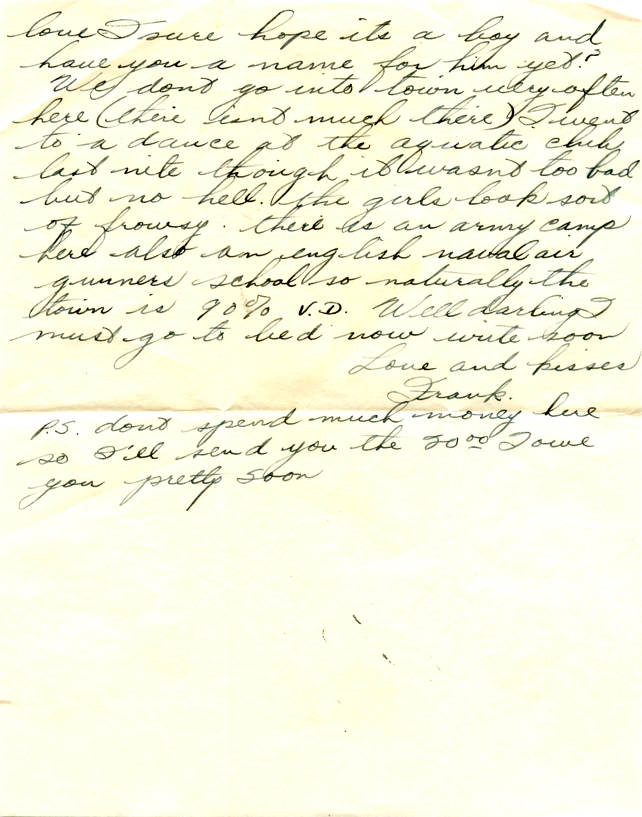 love I sure hope its a boy and
have you a name for him yet?
We dont go into town very often
here (there isnt much there) I went
to a dance at the aquatic club
last nite though it wasnt too bad
but no hell. the girls look sort
of frowsy. there is an army camp
here also an english naval air
gunners school so naturally the
town is 90% V.D. Well darling I
must go to bed now write soon
Love and kisses
Frank.
P.S. dont spend much money here
so I'll send you the 20⁰⁰ I owe
you pretty soon